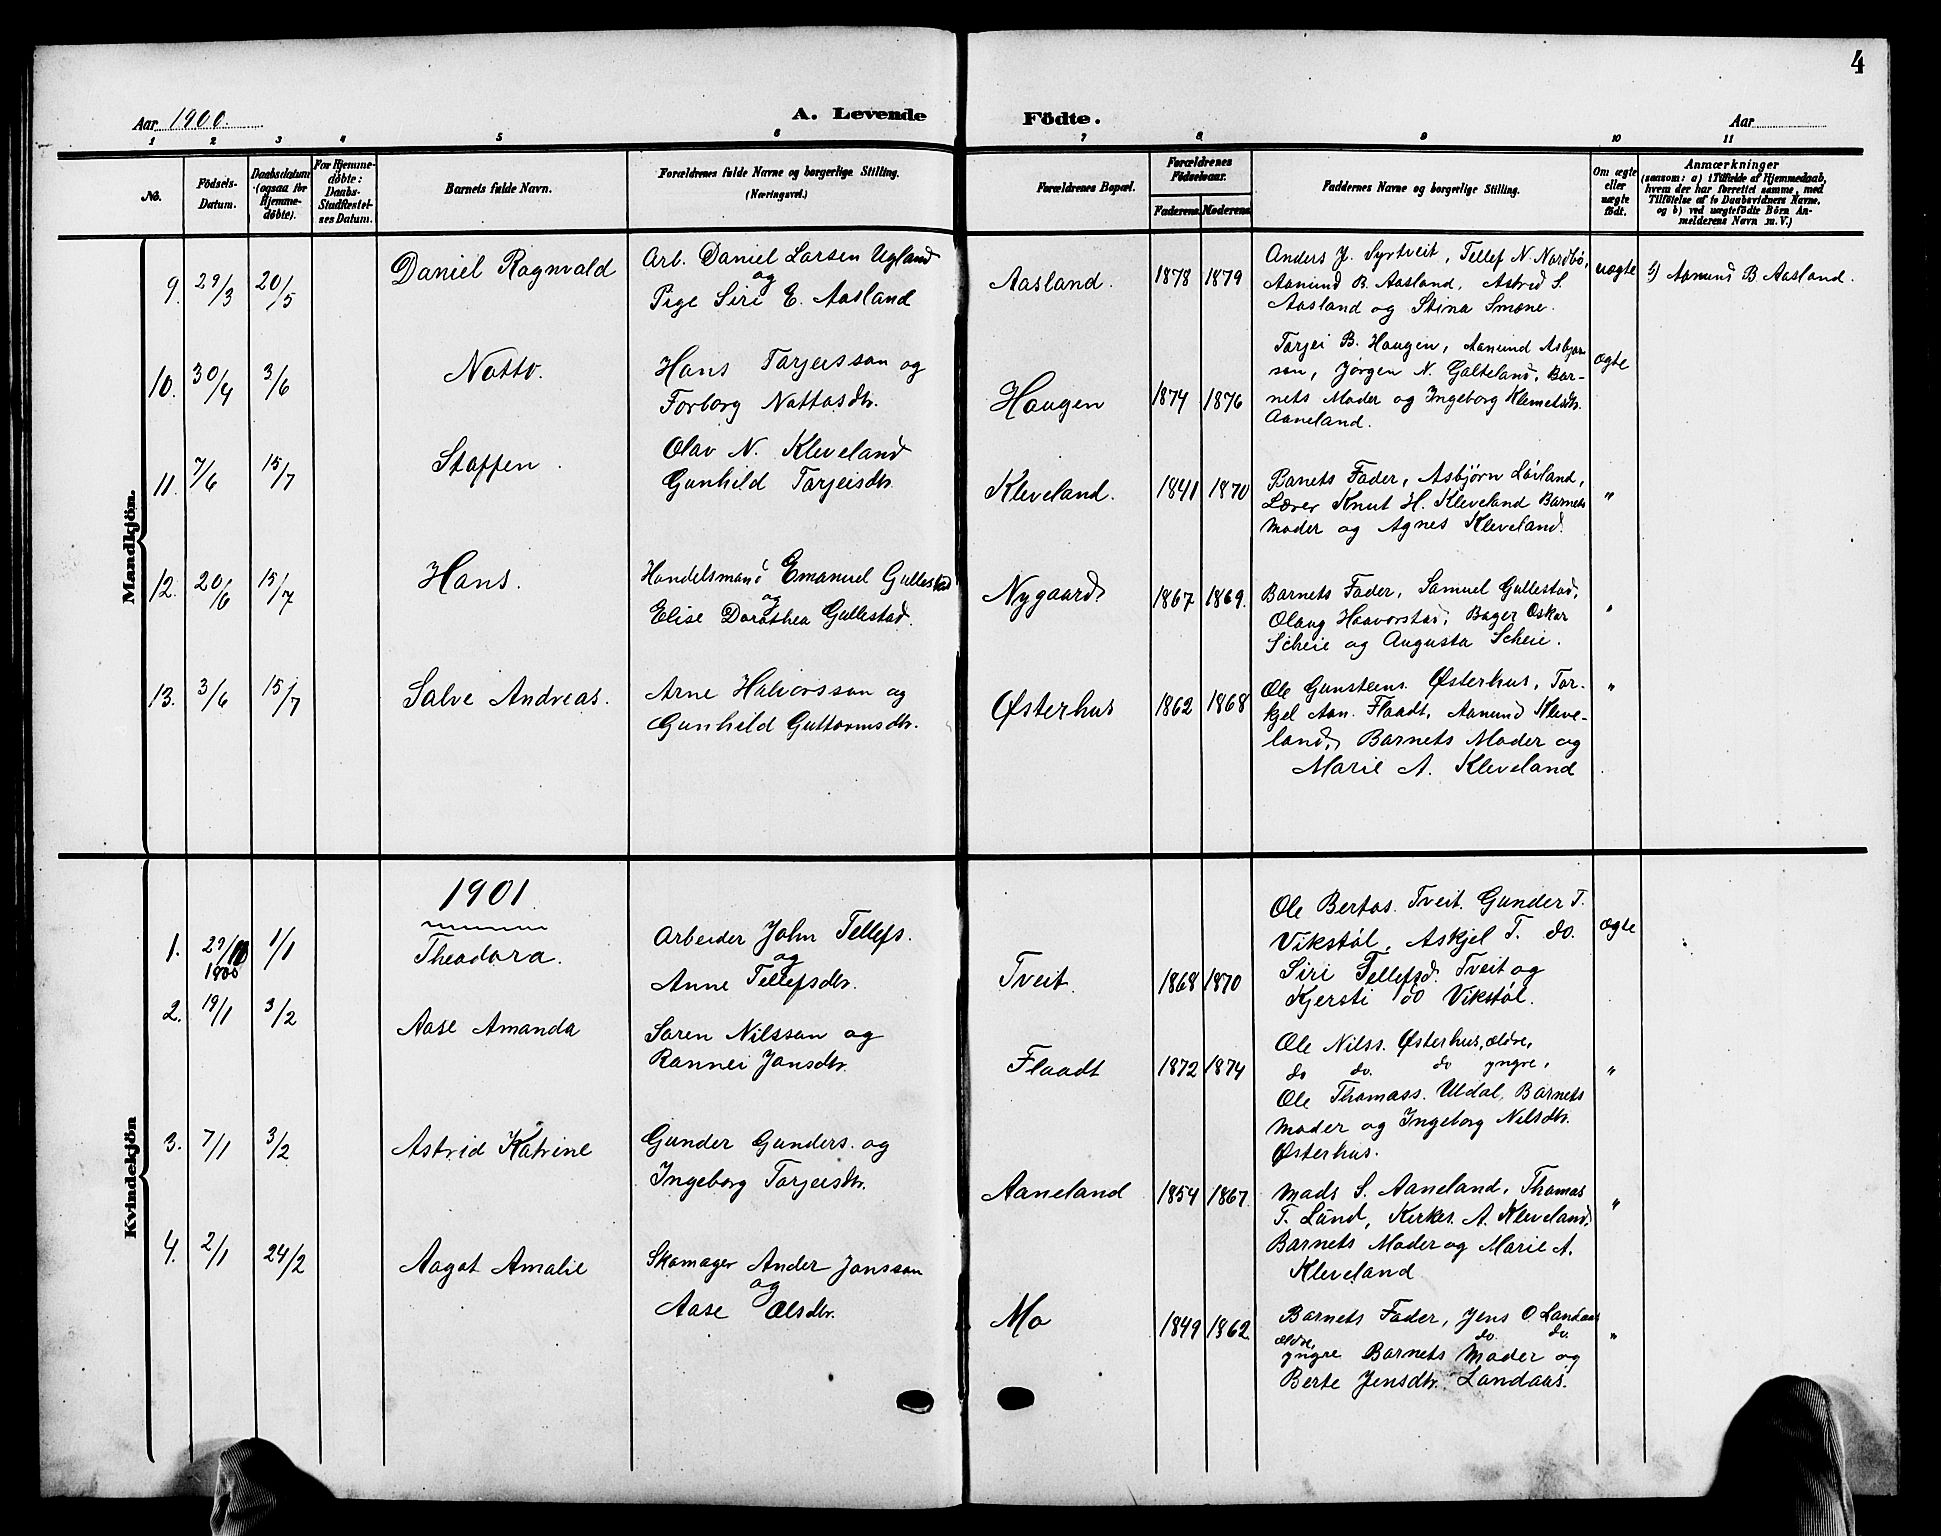 4
Aar 1900. A. Levende Födte. Aar
1 2 3 4 5 6 7 8 9 10 11
No.
Födsels-Datum.
Daabsdatum (ogsaa för Hjemmedöbte).
For Hjemmedöbte: Daabs-Stadfæstelses Datum.
Barnets fulde Navn.
Forældrenes fulde Navne og borgerlige Stilling.
(Næringsvei.)
Forældrenes Bopæl.
Forældrenes Födselsaar.
Faderens. Moderens.
Faddernes Navne og borgerlige Stilling.
Om ægte eller uægte födt.
Anmærkninger
(saasom: a) i Tilfælde af Hjemmedaab,
hvem der har forrettet samme, med
Tilföielse af to Daabsvidners Navne.
og b) ved uægtefödte Börn An-
melderens Navn m. V.)
Mandkjön.
9. 29/3 20/5 Daniel Ragnvald
Arb. Daniel Larsen Ugland
og
Pige Siri E. Aasland
Aasland. 1878 1879
Anders J. Syrtveit, Tellef N. Nordbø,
Aanund B. Aasland, Astrid S.
Aasland og Stina Smæne.
uægte b) Aanund B. Aasland.
10. 30/4 3/6 Natto.
Hans Tarjeisson og
Torborg Nattosdtr.
Haugen 1874 1876
Tarjei B. Haugen, Aanund Asbjørn-
son, Jørgen N. Galteland, Bar-
nets Moder og Ingeborg Klemetsdtr.
Aaneland.
ægte
11. 7/6 15/7 Staffen.
Olav N. Kleveland
Gunhild Tarjeisdtr.
Kleveland. 1841 1870
Banets Fader, Asbjørn Løvland,
Lærer Knut H. Kleveland Barnets
Moder og Agnes Kleveland.
"
12. 20/6 15/7 Hans.
Handelsmand Emanuel Gullestad
og
Elise Dorothea Gullestad.
Nygaard 1867 1869.
Barnets Fader, Samuel Gullestad,
Olaug Haavorstad, Bager Oskar
Scheie og Augusta Scheie.
"
13. 3/6 15/7 Salve Andreas.
Arne Halvorsson og
Gunhild Guttormsdtr.
Østerhus 1862 1868
Ole Gunsteens. Østerhus, Tor-
kjel Aan. Flaadt, Aanund Kleve-
land, Barnets Moder og
Marie A. Kleveland
"
Kvindekjön
1901.
1. 29/10 1900 1/1 Theodora.
Arbeider John Tellefs.
og
Anne Tellefsdtr.
Tveit. 1868 1870
Ole Bertos. Tveit. Gunder T.
Vikstøl, Askjel T. do.
Siri Tellefsd. Tveit og
Kjersti do Vikstøl.
ægte
2. 19/1 3/2 Aase Amanda
Søren Nilsson og
Rannei Jonsdtr.
Flaadt 1872 1874
Ole Nilss. Østerhus, ældre,
do do. do yngre,
Ole Thomass. Uldal, Barnets
Moder og Ingeborg Nilsdtr.
Østerhus.
"
3. 7/1 3/2 Astrid Katrine
Gunder Gunders. og
Ingeborg Tarjeisdtr.
Aaneland 1854 1867.
Mads S. Aaneland, Thomas
T. Lund, Kirkes. A. Kleveland.
Barnets Moder og Marie A.
Kleveland
"
4. 2/1 24/2 Aagot Amalie
Skomager Ander Jonsson
og
Aase Olsdtr.
Mo 1849 1862.
Barnets Fader, Jens O. Landaas
ældre, do. do.
yngre Barnets Moder og
Berte Jensdtr. Landaas.
"